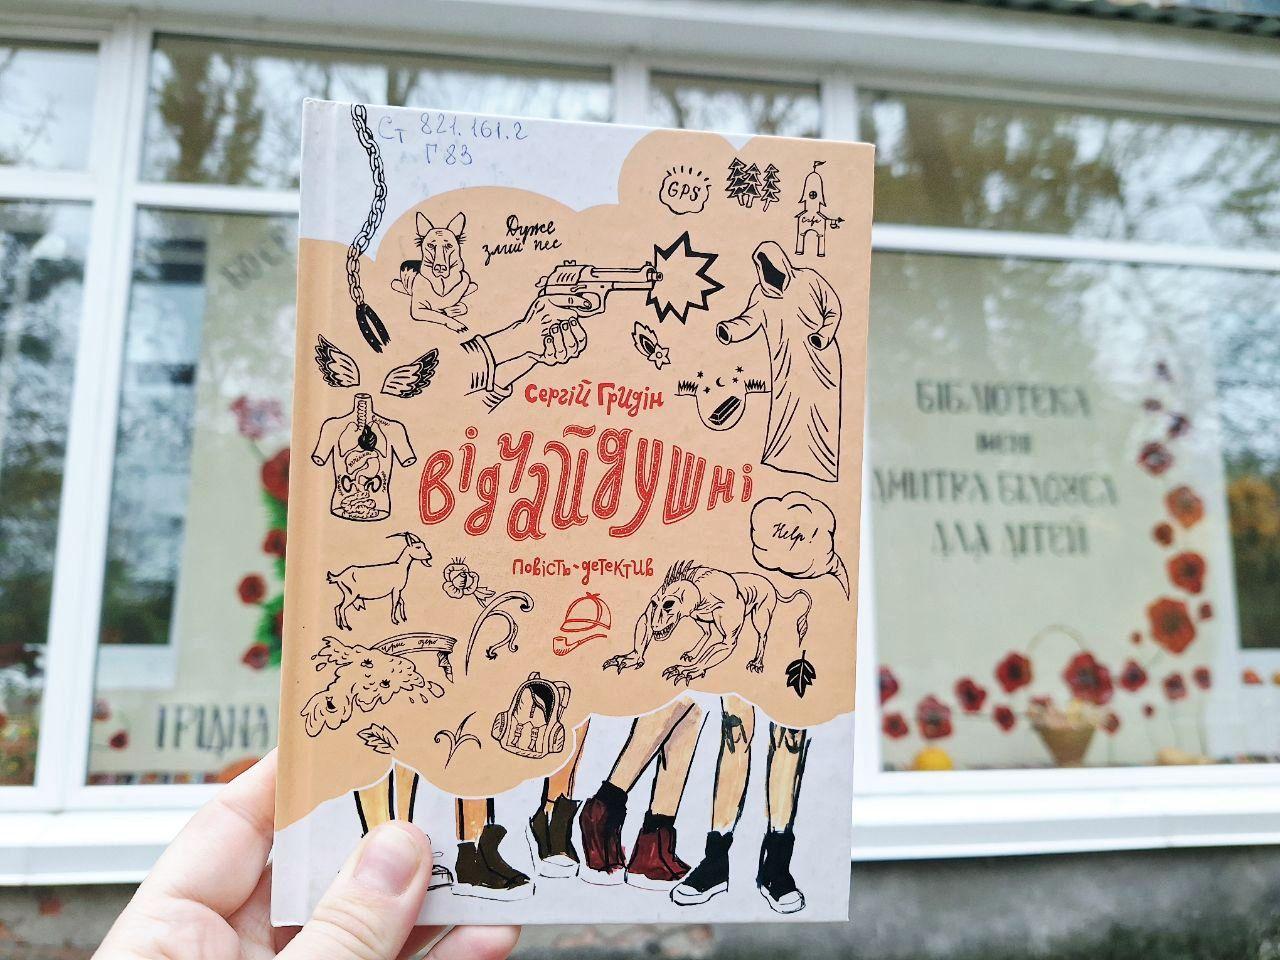 Ст 821.161.2
Г 83
GPS
Дуже
злий пес
Сергій Гридін
Відчайдушні
повість-детектив
Help!
Чорне озеро
БІБЛІОТЕКА
імені
ДМИТРА БІЛОУСА
ДЛЯ ДІТЕЙ
І РІДНА